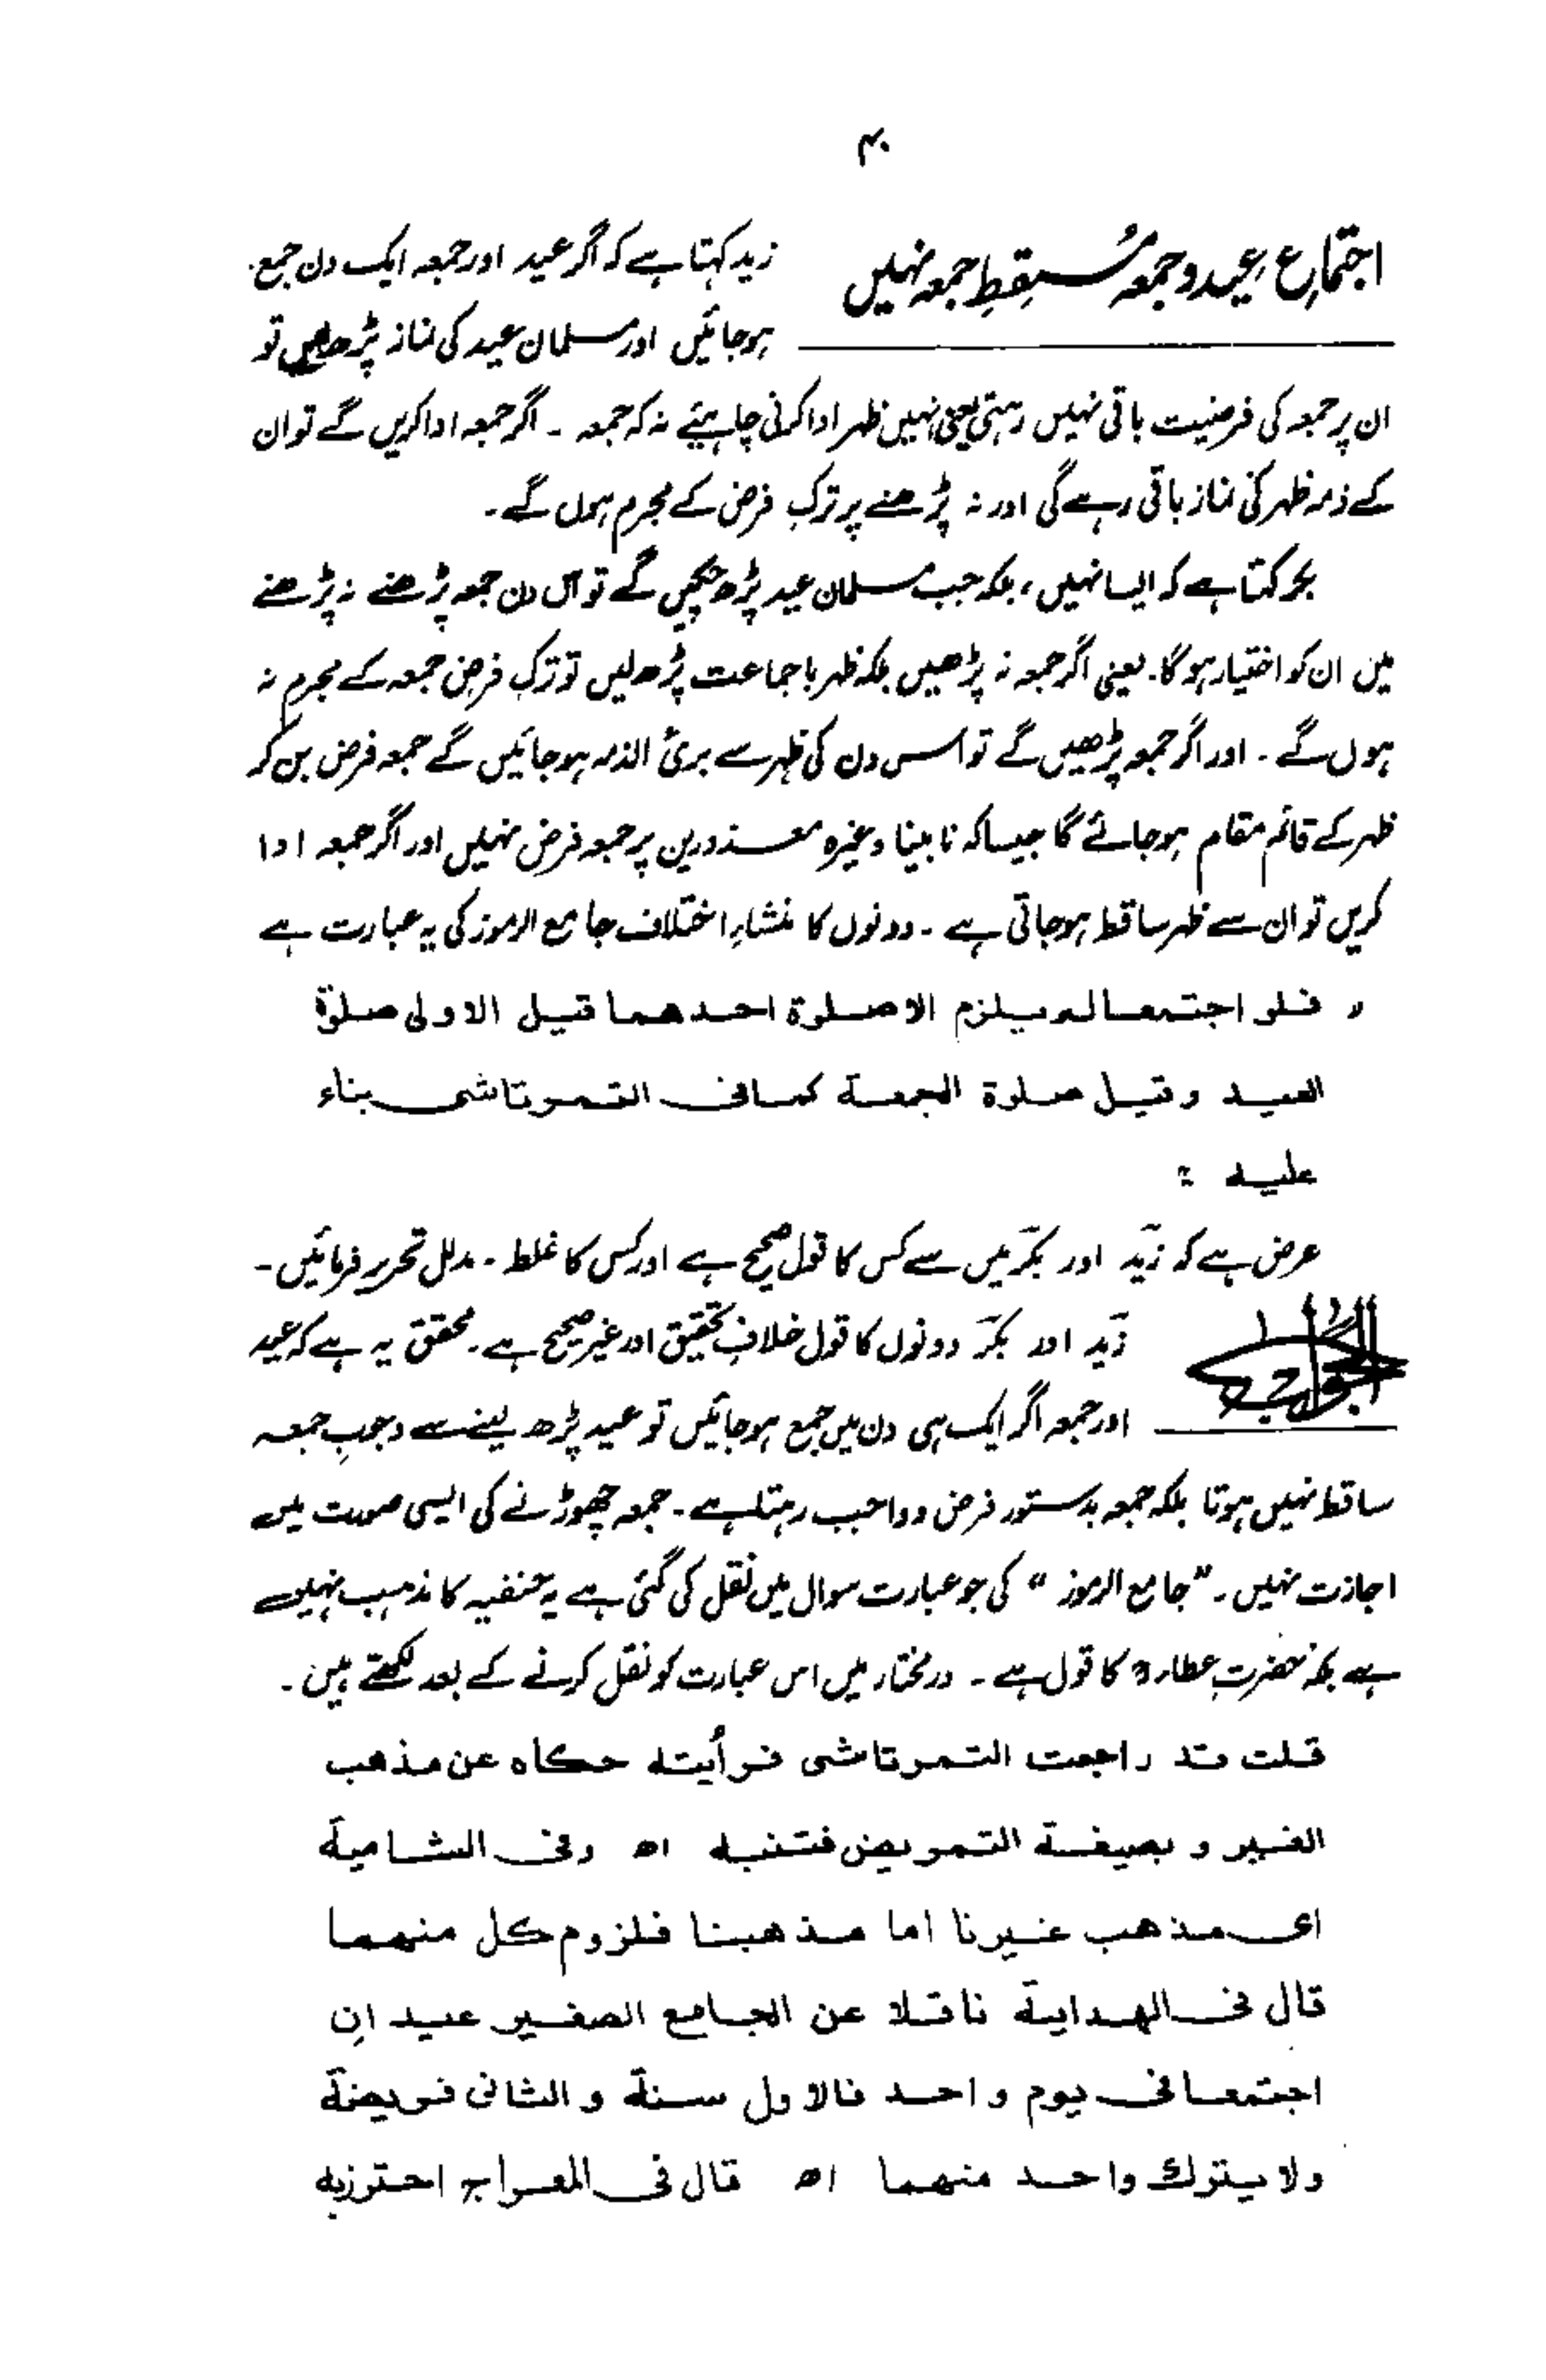 ۴۰
اجتماع عید و جمعہ مُسقِطِ جمعہ نہیں
زید کہتا ہے کہ اگر عید اور جمعہ ایک دن جمع
ہو جائیں اور مسلمان عید کی نماز پڑھ لیں تو
ان پر جمعہ کی فرضیت باقی نہیں رہتی یعنی انہیں ظہر ادا کرنی چاہیئے نہ کہ جمعہ ۔ اگر جمعہ ادا کریں گے تو ان
کے ذمہ ظہر کی نماز باقی رہے گی اور نہ پڑھنے پر ترکِ فرض کے مجرم ہوں گے ۔
بکر کہتا ہے کہ ایسا نہیں ، بلکہ جب مسلمان عید پڑھ چکیں گے تو اس دن جمعہ پڑھنے نہ پڑھنے
میں ان کو اختیار ہو گا۔ یعنی اگر جمعہ نہ پڑھیں بلکہ ظہر باجماعت پڑھ لیں تو ترکِ فرضِ جمعہ کے مجرم نہ
ہوں گے ۔ اور اگر جمعہ پڑھیں گے تو اس دن کی ظہر سے بریٔ الذمہ ہو جائیں گے جمعہ فرض بن کر
ظہر کے قائم مقام ہو جائے گا جیسا کہ نابینا وغیرہ معذورین پر جمعہ فرض نہیں اور اگر جمعہ ادا
کریں تو ان سے ظہر ساقط ہو جاتی ہے ۔ دونوں کا منشاءِ اختلاف جامع الرموز کی یہ عبارت ہے
” فلو اجتمعا لم یلزم الا صلوۃ احدھما قیل الاولی صلوٰۃ
العید وقیل صلوۃ الجمعۃ کما فی التمرتاشی بناء
علیہ :
عرض ہے کہ زید اور بکر میں سے کس کا قول صحیح ہے اور کس کا غلط ۔ مدلل تحریر فرمائیں ۔
الجواب
زید اور بکر دونوں کا قول خلافِ تحقیق اور غیر صحیح ہے ۔ محقق یہ ہے کہ عید
اور جمعہ اگر ایک ہی دن میں جمع ہو جائیں تو عید پڑھ لینے سے وجوبِ جمعہ
ساقط نہیں ہوتا بلکہ جمعہ بدستور فرض و واجب رہتا ہے ۔ جمعہ چھوڑنے کی ایسی صورت میں
اجازت نہیں ۔ ”جامع الرموز “ کی جو عبارت سوال میں نقل کی گئی ہے یہ حنفیہ کا مذہب نہیں
ہے بلکہ حضرتِ عطارؒ کا قول ہے ۔ درمختار میں اس عبارت کو نقل کرنے کے بعد لکھتے ہیں ۔
قلت قد راجعت التمرتاشی فرأیته حکاہ عن مذھب
الغیر و بصیغۃ التمریض فتنبه اھ وفی الشامیۃ
ای مذھب غیرنا اما مذھبنا فلزوم کل منھما
قال فی الھدایۃ ناقلا عن الجامع الصغیر عیدان
اجتمعا فی یوم واحد فالاول سنۃ والثانی فریضۃ
ولا یترک واحد منھما اھ قال فی المعراج احترز به